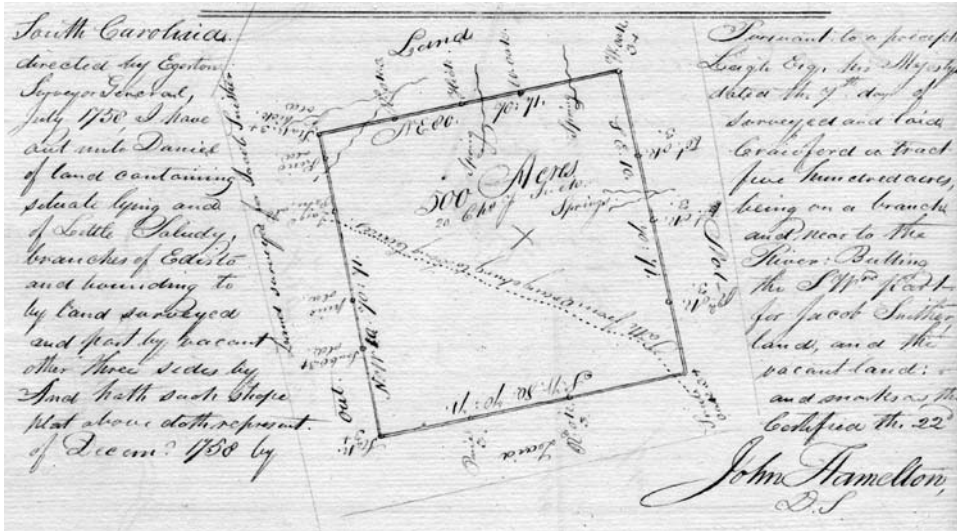 South Carolina.
directed by Egerton
Surveyor General,
July 1758, I have
out unto Daniel
of land containing
situate lying and
of Little Saludy,
branches of Edisto
and bounding to
by land surveyed
and part by vacant
other three sides by
And hath such shape
plat above doth represent.
of Decem? 1758 by
Land surveyed for Jacob Smither
Land
N E 80.
Spring
Spring
500 Acres
Spring
S E 10.
70: 71.
N W 10. 70: 71.
Path from Orangeburg
S. W. 80. 70: 71.
Laid
out.
Not
Pursuant to a precept
Leigh Esq. his Majestys
dated the 7th day of
surveyed and laid
Crawford a tract
five hundred acres,
being on a branch
and near to the
River: Butting
the S Wrd part
for Jacob Smither,
land, and the
vacant land:
and marks as the
Certified the 22d
John Hamelton,
D.S